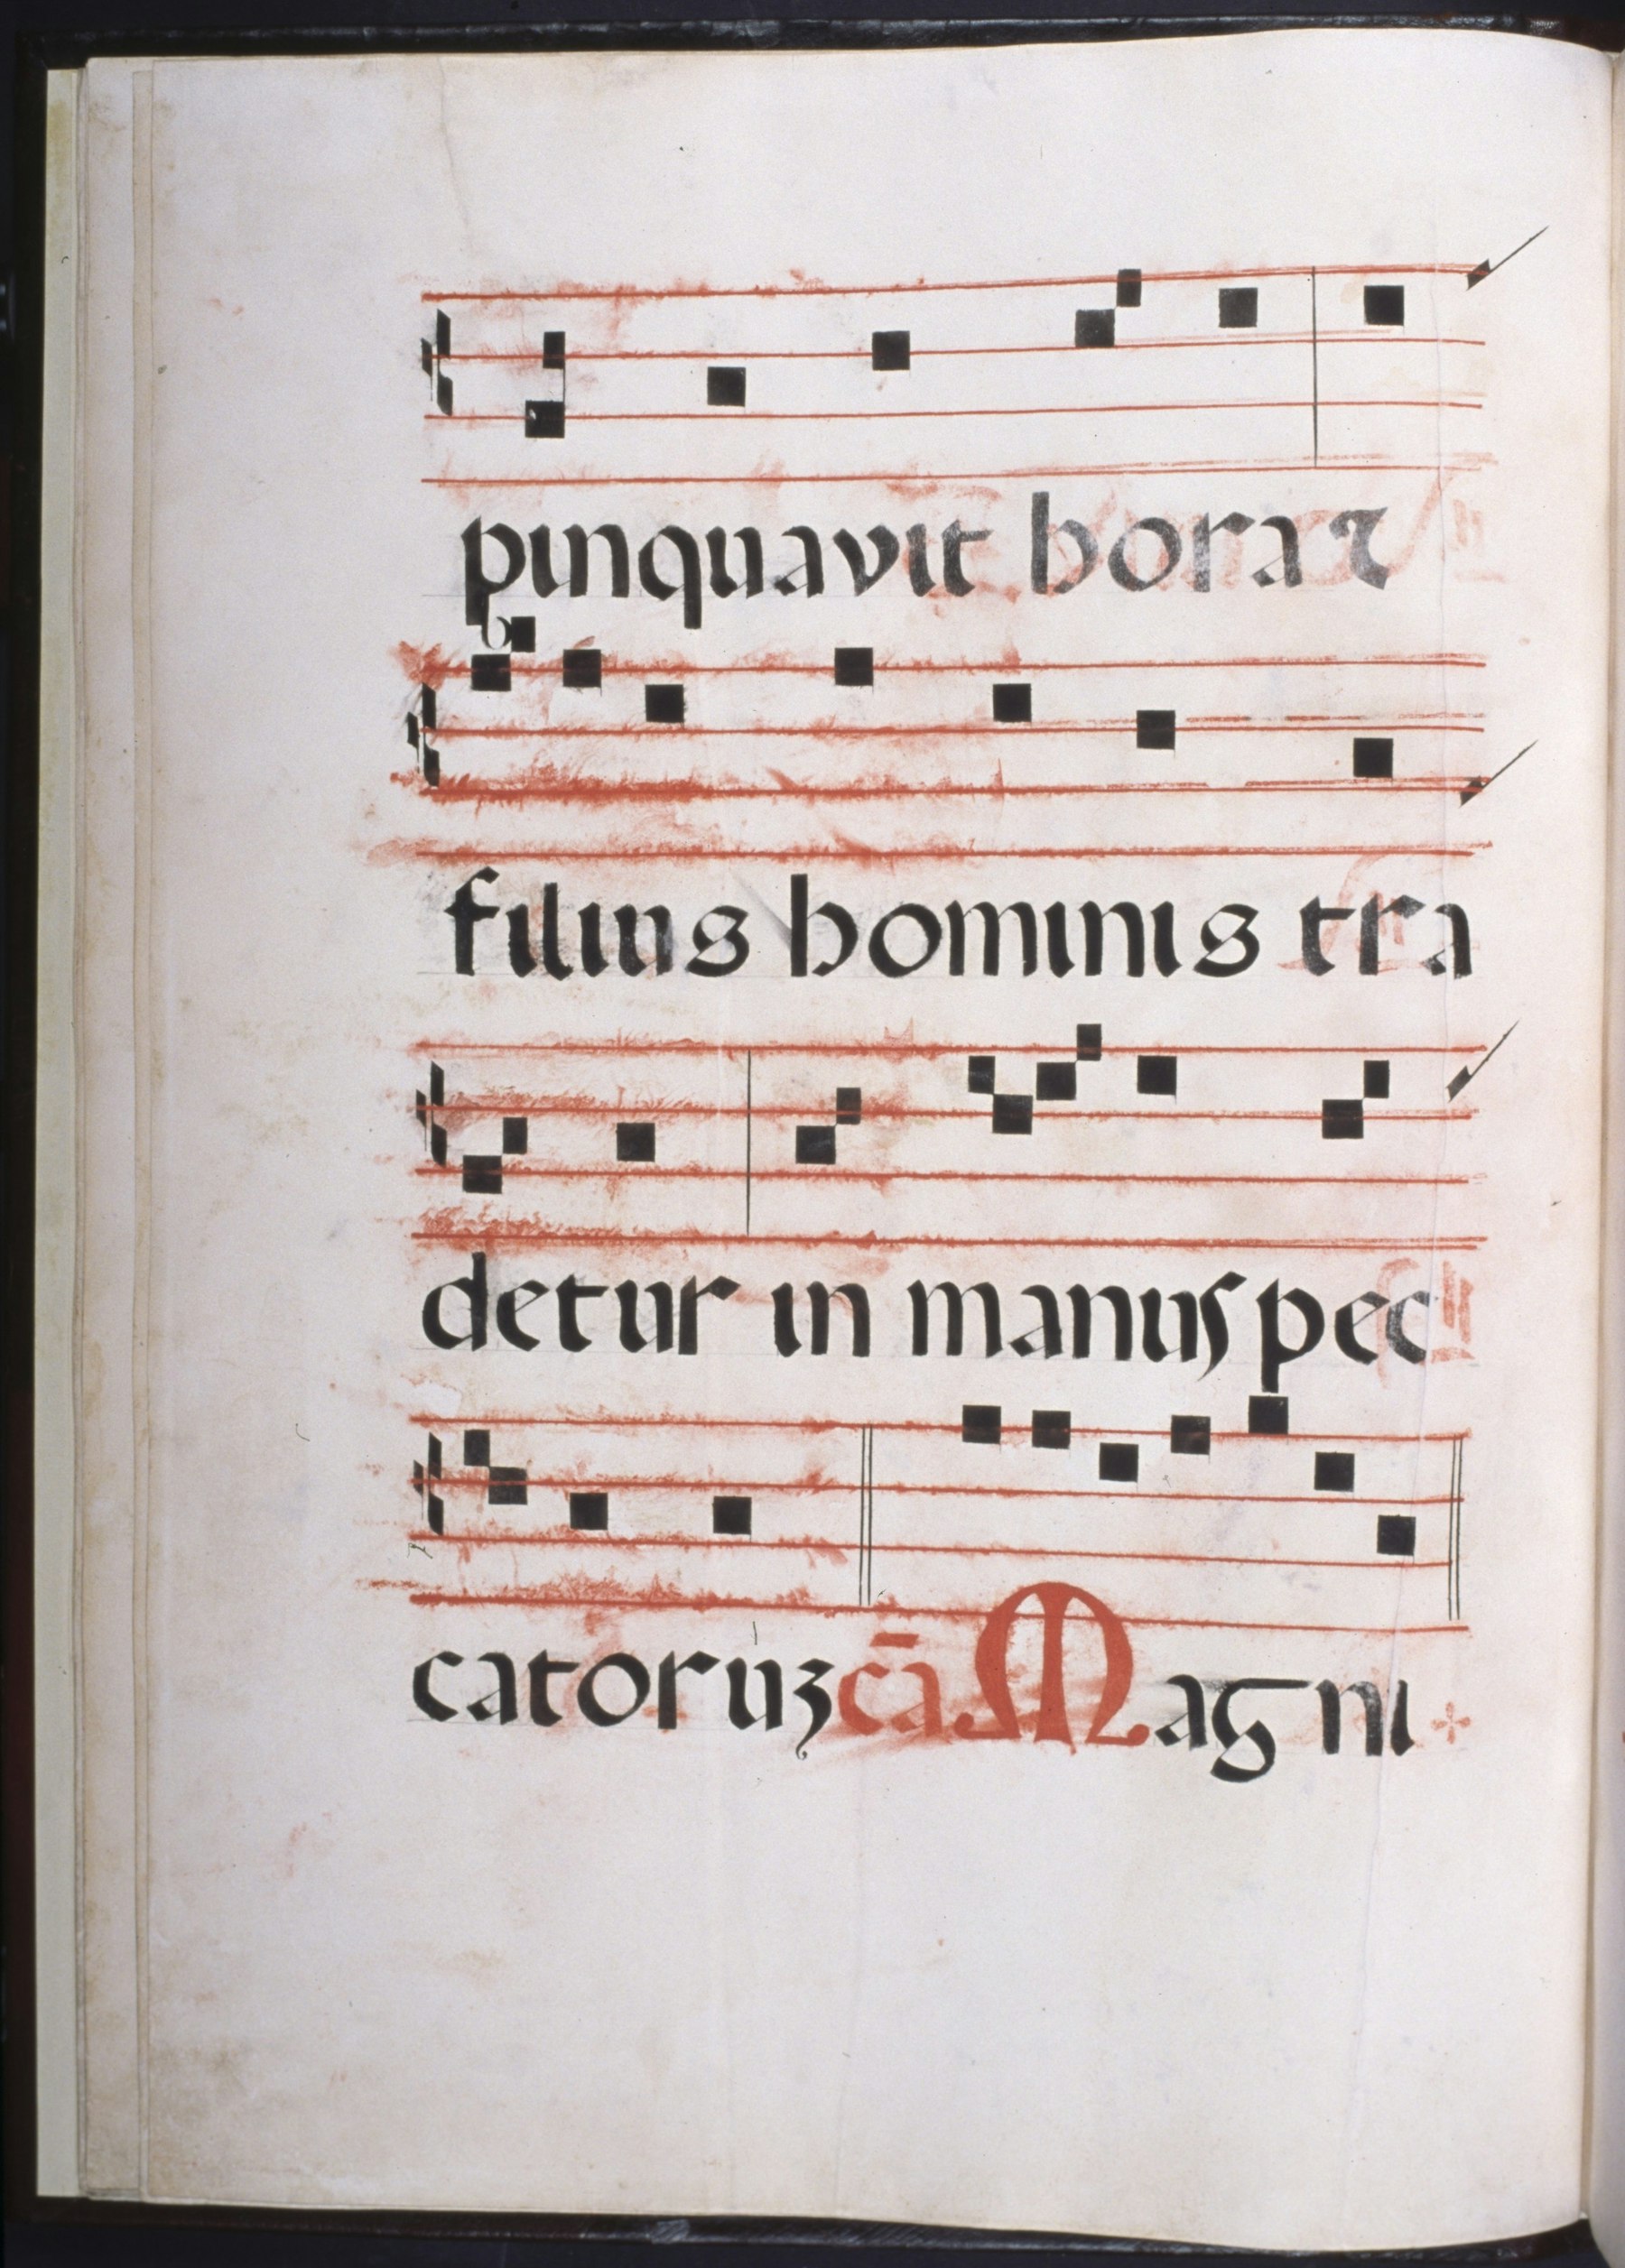 pinquavit hora ⁊
filius hominis tra
detur in manus pec
catorúꝫ cā Magni